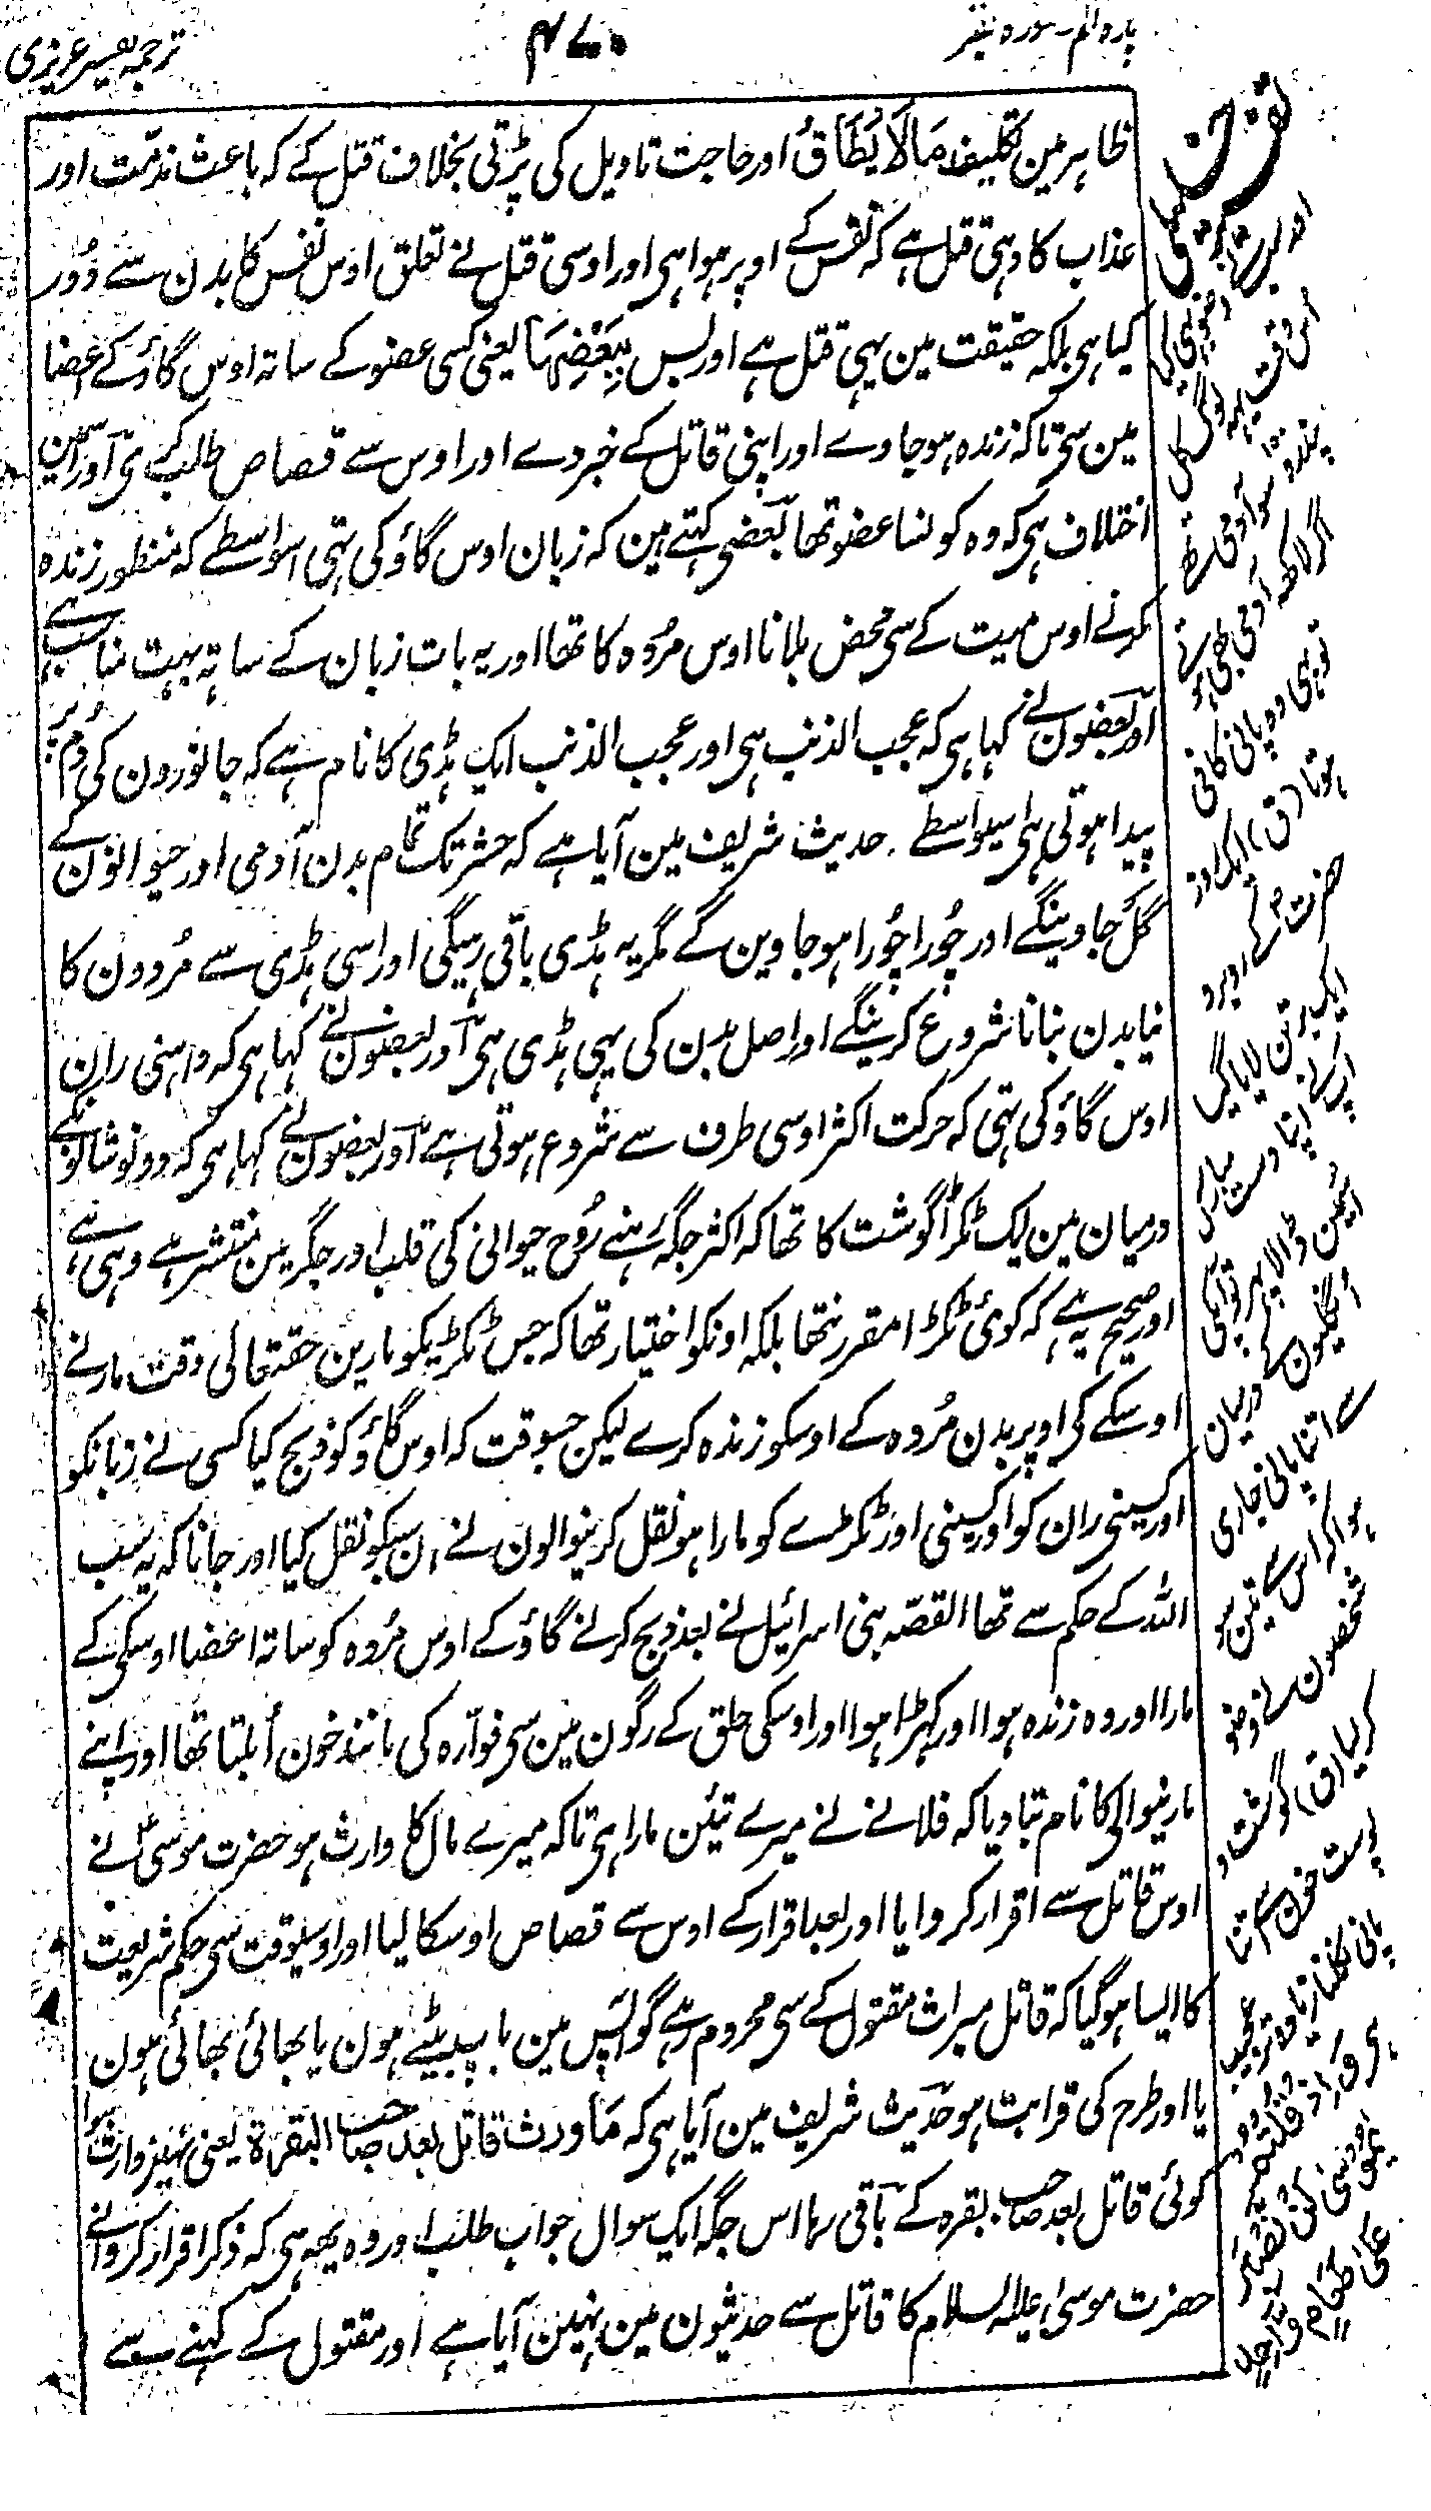 پارہ الم - سورہ بقر
۴۷۰
ترجمہ تفسیر عزیزی
ظاہر مین تکلیف مَالَا یُطَاقُ اور حاجت تاویل کی پڑتی بخلاف قتل کے کہ باعث مذمّت اور
عذاب کا وہی قتل ہے کہ نفس کے اوپر ہوا ہی اور اوسی قتل نے تعلق اوس نفس کا بدن سے دُور
کیا ہی بلکہ حقیقت مین یہی قتل ہے اور بس بِبَعْضِہَا یعنی کسی عضو کے ساتہ اوس گاؤ کے اعضا
مین سی تا کہ زندہ ہو جاوے اور اپنی قاتل کے خبر دے اور اوس سے قصاص طلب کرے اور اسمین
اختلاف ہی کہ وہ کونسا عضو تھا بعضی کہتے ہین کہ زبان اوس گاؤ کی تہی اسواسطے کہ منظور زندہ
کرنے اوس میت کے سی محض بلانا اوس مُردہ کا تھا اور یہ بات زبان کے ساتہ بہت مناسب ہے
اور بعضون نے کہا ہی کہ عجب الذنب ہی اور عجب الذنب ایک ہڈی کا نام ہے کہ جانورون کی دُم پر
پیدا ہوتی ہی اسیواسطے حدیث شریف مین آیا ہے کہ حشر تک تمام بدن آدمی اور حیوانون کے
گل جاوینگے اور چُورا چُورا ہو جاوین گے مگر یہ ہڈی باقی رہیگی اور اسی ہڈی سے مُردون کا
نیا بدن بنانا شروع کرینگے اور اصل بدن کی یہی ہڈی ہی اور بعضون نے کہا ہی کہ داہنی ران
اوس گاؤ کی تہی کہ حرکت اکثر اوسی طرف سے شروع ہوتی ہے اور بعضون نے کہا ہی کہ دونو شانونکے
درمیان مین ایک ٹکڑا گوشت کا تھا کہ اکثر جگہ رہنے رُوح حیوانی کی قلب اور جگر مین منتشر ہے وہی ہے
اور صحیح یہ ہے کہ کوئی ٹکڑا مقرر نتھا بلکہ اونکو اختیار تھا کہ جس ٹکڑیکو مارین حقتعالی وقت مارنے
اوسکے کی اوپر بدن مُردہ کے اوسکو زندہ کرے لیکن جسوقت کہ اوس گاؤ کو ذبح کیا کسی نے زبانکو
اور کسینی ران کو اور کسینی اور ٹکڑے کو مارا ہو نقل کرنیوالون نے ان سبکو نقل کیا اور جانا کہ یہ سب
اللہ کے حکم سے تھا القصّہ بنی اسرائیل نے بعد ذبح کرنے گاؤ کے اوس مُردہ کو ساتہ اعضا اوسکی کے
مارا اور وہ زندہ ہوا اور کہڑا ہوا اور اوسکی حلق کے رگون مین سی فوّارہ کی مانند خون اُبلتا تھا اور اپنے
مارنیوالی کا نام بتا دیا کہ فلانے نے میرے تیئن مارا ہی تا کہ میرے مال کا وارث ہو حضرت موسی نے
اوس قاتل سے اقرار کروایا اور بعد اقرار کے اوس سے قصاص اوسکا لیا اور اوسیوقت سی حکم شریعت
کا ایسا ہو گیا کہ قاتل میراث مقتول کے سی محروم ہے گو آپس مین باپ بیٹے ہون یا بھائی بھائی ہون
یا اور طرح کی قرابت ہو حدیث شریف مین آیا ہی کہ مَا ورث قاتل بعد صاحب البقرۃ یعنی نہین وارث ہوا
کوئی قاتل بعد صاحب بقرہ کے باقی رہا اس جگہ ایک سوال جواب طلب اور وہ یہہ ہی کہ ذکر اقرار کروانے
حضرت موسیٰ علیہ السلام کا قاتل سے حدیثون مین نہین آیا ہے اور مقتول کے کہنے سے
اگر لاکھہ آدمی بھی ہوتے
تو بھی وہ پانی کافی
ہوتا (ق) ایک روز
حضرت کے روبرو
ایک برتن لایا گیا
آپ نے اپنا دست مبارک
اسمین ڈالا پہر تو آپکی
اُنگلیون کے درمیان
سے اتنا پانی جاری
ہوا کہ اس سے تین سو
شخصون نے وضو
کر لیا (ق) گوشت و
پوست خون سے
پانی نکلنا زیادہ تر عجیب